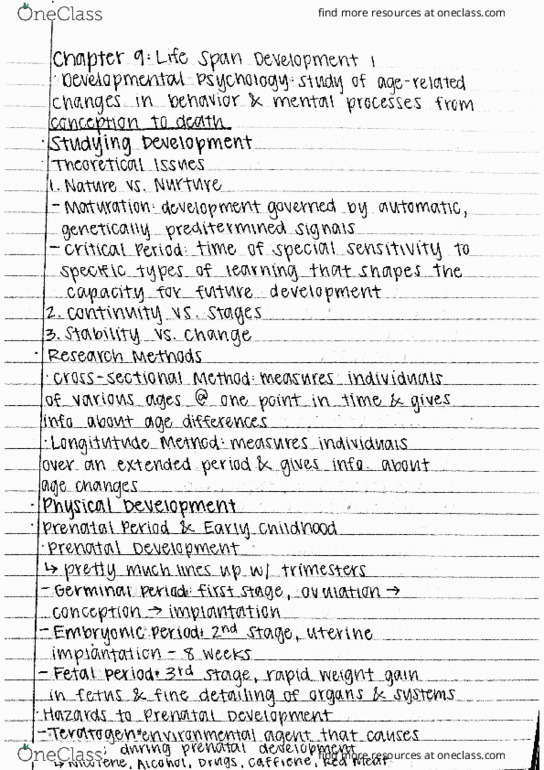 OneClass
find more resources at oneclass.com
Chapter 9: Life Span Development 1
· Developmental Psychology: study of age-related
changes in behavior & mental processes from
conception to death
· Studying Development
· Theoretical Issues
1. Nature vs. Nurture
- Maturation: development governed by automatic,
genetically preditermined signals
- Critical Period: time of special sensitivity to
specific types of learning that shapes the
capacity for future development
2. Continuity vs. Stages
3. Stability vs. Change
· Research Methods
· Cross-sectional Method: measures individuals
of various ages @ one point in time & gives
info about age differences
· Longitutude Method: measures individuals
over an extended period & gives info. about
age changes
· Physical Development
· Prenatal Period & Early Childhood
· Prenatal Development
↳ pretty much lines up w/ trimesters
- Germinal Period: first stage, ovulation →
conception → implantation
- Embryonic Period: 2nd stage, uterine
implantation - 8 weeks
- Fetal Period: 3rd stage, rapid weight gain
in fetus & fine detailing of organs & systems
· Hazards to Prenatal Development
- Teratogen: environmental agent that causes
during prenatal development
Alcohol, Drugs, caffeine, Red Meat
OneClass
find more resources at oneclass.com